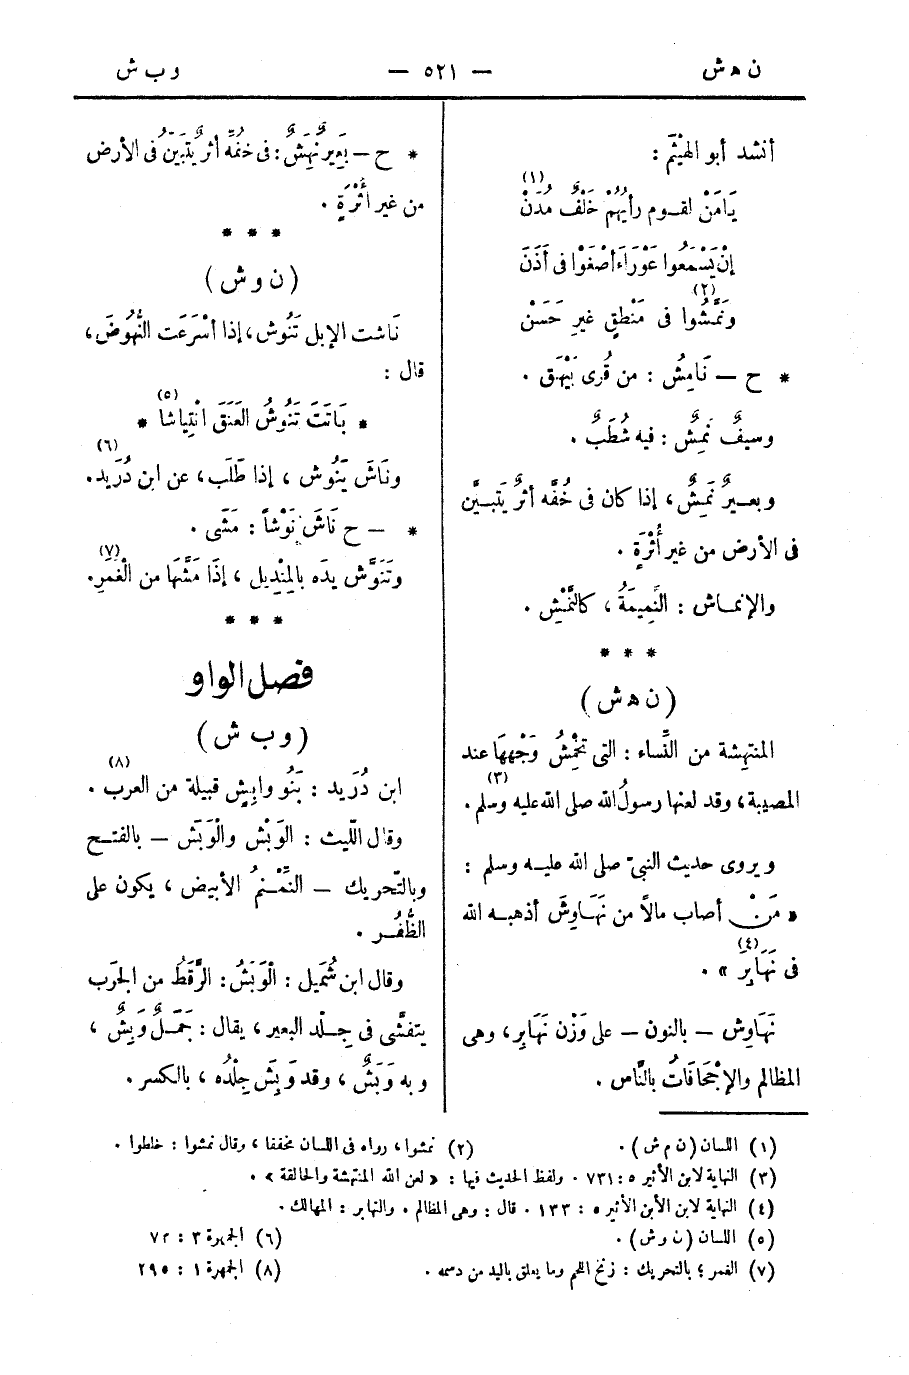 ن ه ش
— ٥٢١ —
و ب ش
أنشد أبو الهيثم :
يَامَنْ لقوم رأيُهُمْ خَلْفٌ مُدَنْ (١)
إنْ يَسْمَعُوا عَوْرَاءَ أصْغَوْا فى أذَنَ
ونَمَّشُوا (٢) فى مَنْطِقٍ غيرِ حَسَنْ
* ح — نَامِشُ : من قُرى بَيْهَق .
وسيفٌ نَمِشٌ : فيه شُطَبٌ .
وبعـيرٌ نَمِشٌ ، إذا كان فى خُفَّه أثرٌ يَتبـيَّن
فى الأرض من غير أُثْرَةٍ .
والإنمـاش : النَّمِيمَةُ ، كالنَّمْشِ .
* * *
( ن ه ش )
المنتهِشة من النِّساء : التى تَخْمِشُ وَجْهَهَا عند
المصيبة ، وقد لعنها رسولُ الله صلى الله عليه وسلم . (٣)
ويروى حديث النبىّ صلى الله عليـه وسلم :
« مَنْ أصاب مالاً من نَهَـاوِشَ أذهبـه الله
فى نَهَابِرَ » . (٤)
نَهَاوِش — بالنون — على وَزْن نَهَابِر ، وهى
المظالم والإجْحَافَاتُ بالنَّاس .
* ح — بَعِيرٌ نَهِشٌ : فى خفِّه أثرٌ يَتَبَيَّنُ فى الأرض
من غير أُثْرَةٍ .
* * *
( ن و ش )
نَاشت الإبل تَنُوش ، إذا أسْرَعَت النُّهُوضَ ،
قال :
* بَاتَتْ تَنُوشُ العَنَقَ انْتِياشا (٥) *
ونَاشَ يَنُوش ، إذا طَلَب ، عن ابن دُرَيد . (٦)
* — ح نَاشَ نَوْشاً : مَشَى .
وتَنَوَّش يدَه بالمِنْدِيل ، إذَا مَشَّهَا من الْغَمَرِ . (٧)
* * *
فصل الواو
( و ب ش )
ابن دُرَيد : بَنُو وابِشٍ قبيلة من العرب . (٨)
وقال اللّيث : الوَبْش والْوَبَش — بالفتـح
وبالتّحريك — النِّمْنِمُ الأبيض ، يكون على
الظُّفُـر .
وقال ابن شُمَيل : الْوَبَشُ : الرَّقَطُ من الجَرَب
يتفشَّى فى جِـلْد البعير ، يقال : جَمَـلٌ وَبِشٌ ،
وبه وَبَشٌ ، وقد وَبِشَ جِلْدُه ، بالكسر .
(١) اللسان ( ن م ش ) .
(٢) نمشوا ، رواه فى اللسان مخففا ، وقال نمشوا : خلطوا .
(٣) النهاية لابن الأثير ٥ : ٧٣١ . ولفظ الحديث فيها : « لعن الله المنتهشة والحالقة » .
(٤) النهاية لابن الأبن الأثير ٥ : ١٣٣ . قال : وهى المظالم . والنهابر : المهالك .
(٥) اللسان ( ن و ش ) .
(٦) الجمهرة ٣ : ٧٢
(٧) الغمر ؛ بالتحريك : زنخ اللحم وما يعلق باليد من دسمه .
(٨) الجمهرة ١ : ٢٩٥